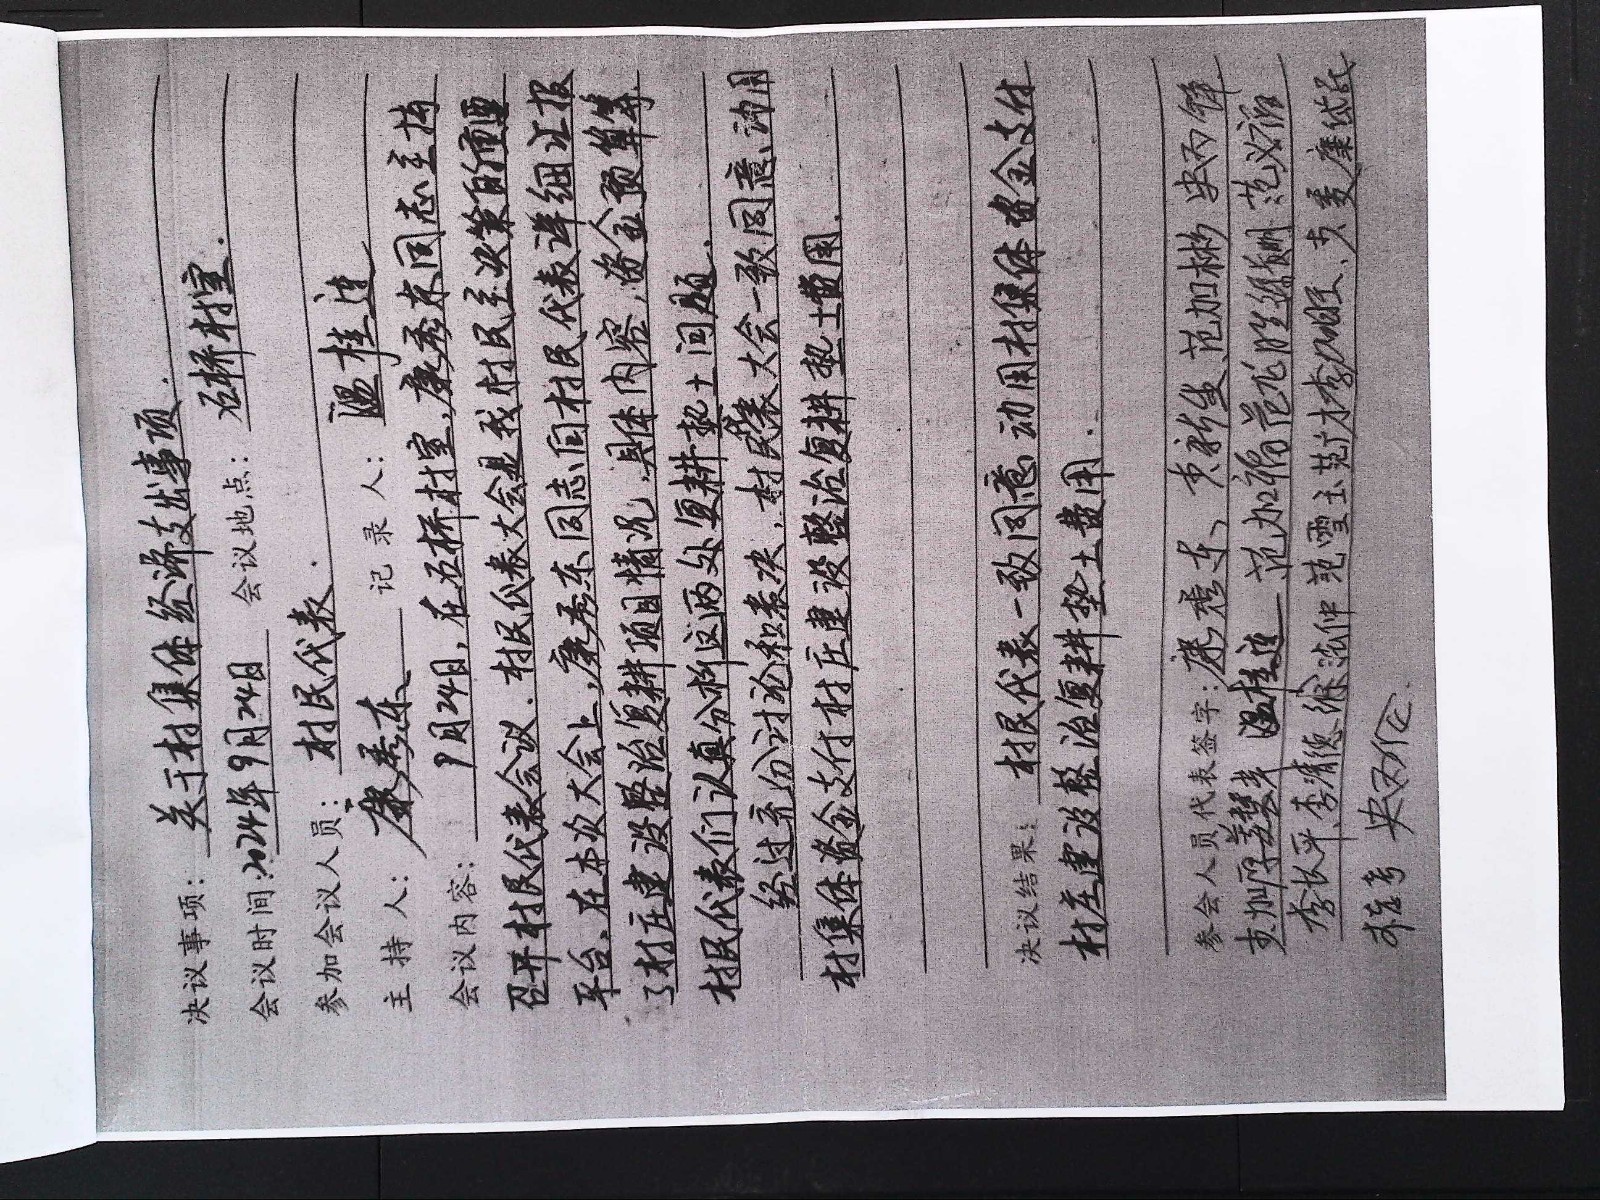 决议事项：关于村集体经济支出事项.
会议时间：2024年9月24日 会议地点：石桥村室.
参加会议人员：村民代表.
主持人：康秀东 记录人：温桂连
会议内容：9月24日,在石桥村室,康秀东同志主持
召开村民代表会议.村民代表大会是我村民主决策的重要
平台,在本次大会上,康秀东同志向村民代表详细汇报
了村庄建设整治复耕项目情况,具体内容,资金预算等.
村民代表们认真分析这两处复耕垫土问题.
经过充份讨论和表决,村民代表大会一致同意,动用
村集体资金支付村庄建设整治复耕垫土费用.
决议结果：村民代表一致同意动用村集体资金支付
村庄建设整治复耕垫土费用.
参会人员代表签字：康秀东、 范加彬
温桂连 范加福
李长平 李清德 徐法仲 范雪玉